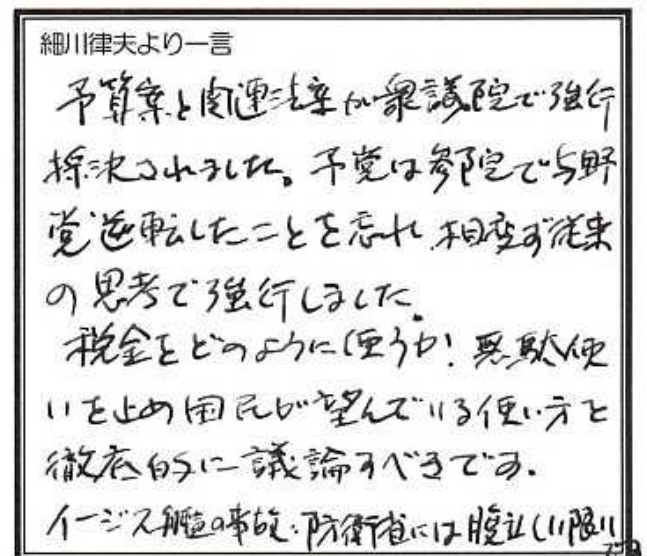 細川律夫より一言
予算案と関連法案が衆議院で強行
採決されました。予党は参院で与野
党逆転したことを忘れ、相変ず従来
の思考で強行しました。
税金をどのように使うか！悪駄使
いを止め国民が望んでいる使い方を
徹底的に議論すべきです。
イージス艦の事故・防衛省には腹立しい限り
です